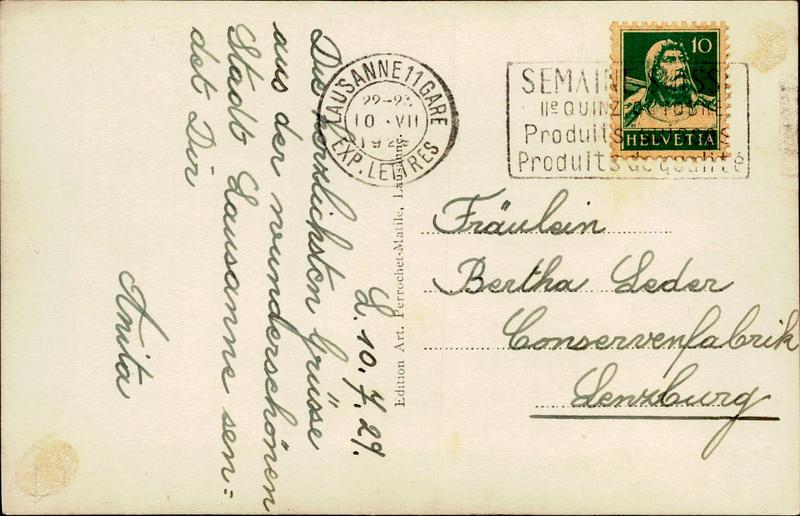 L. 10. 7. 29.
Die herzlichsten Grüsse
aus der wunderschönen
Stadt Lausanne sen=
det Dir
Anita
Edition Art. Perrochet-Matile, Lausanne.
LAUSANNE 11 GARE
22-23
10 · VII
EXP. LETTRES
SEMAINE SUISSE
IIe QUINZ
Produits
Produits de qualité
10
HELVETIA
Fräulein
Bertha Leder
Conservenfabrik
Lenzburg